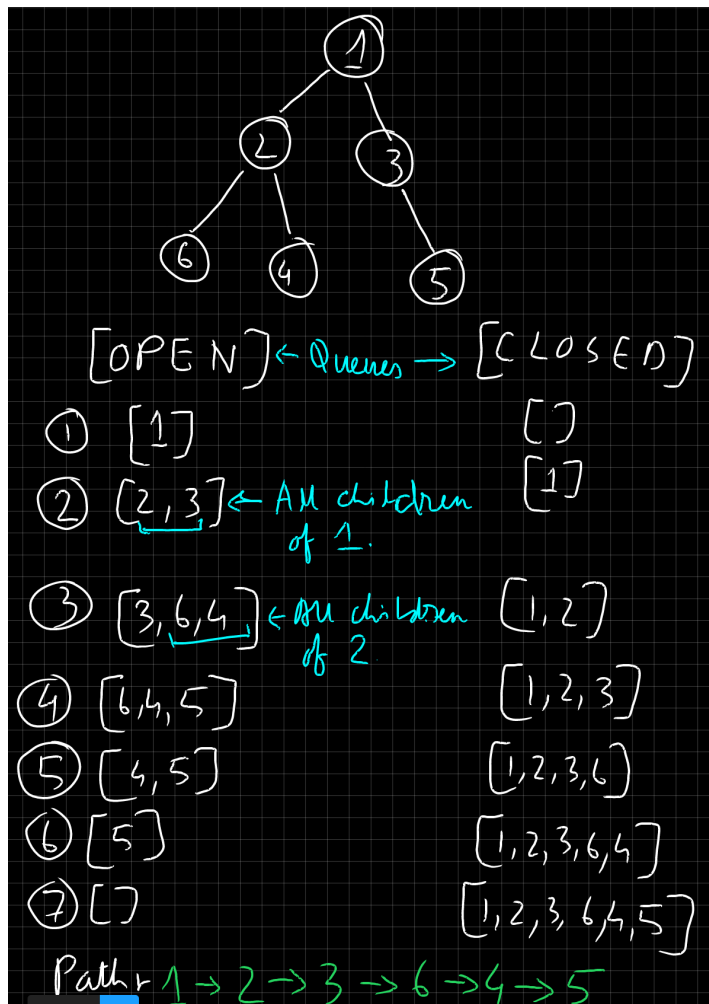 1
2 3
6 4 5
[OPEN] ← Queues → [CLOSED]
① [1] []
② [2,3] ← All children [1]
of 1.
③ [3,6,4] ← All children [1,2]
of 2
④ [6,4,5] [1,2,3]
⑤ [4,5] [1,2,3,6]
⑥ [5] [1,2,3,6,4]
⑦ [] [1,2,3,6,4,5]
Path: 1 → 2 → 3 → 6 → 4 → 5